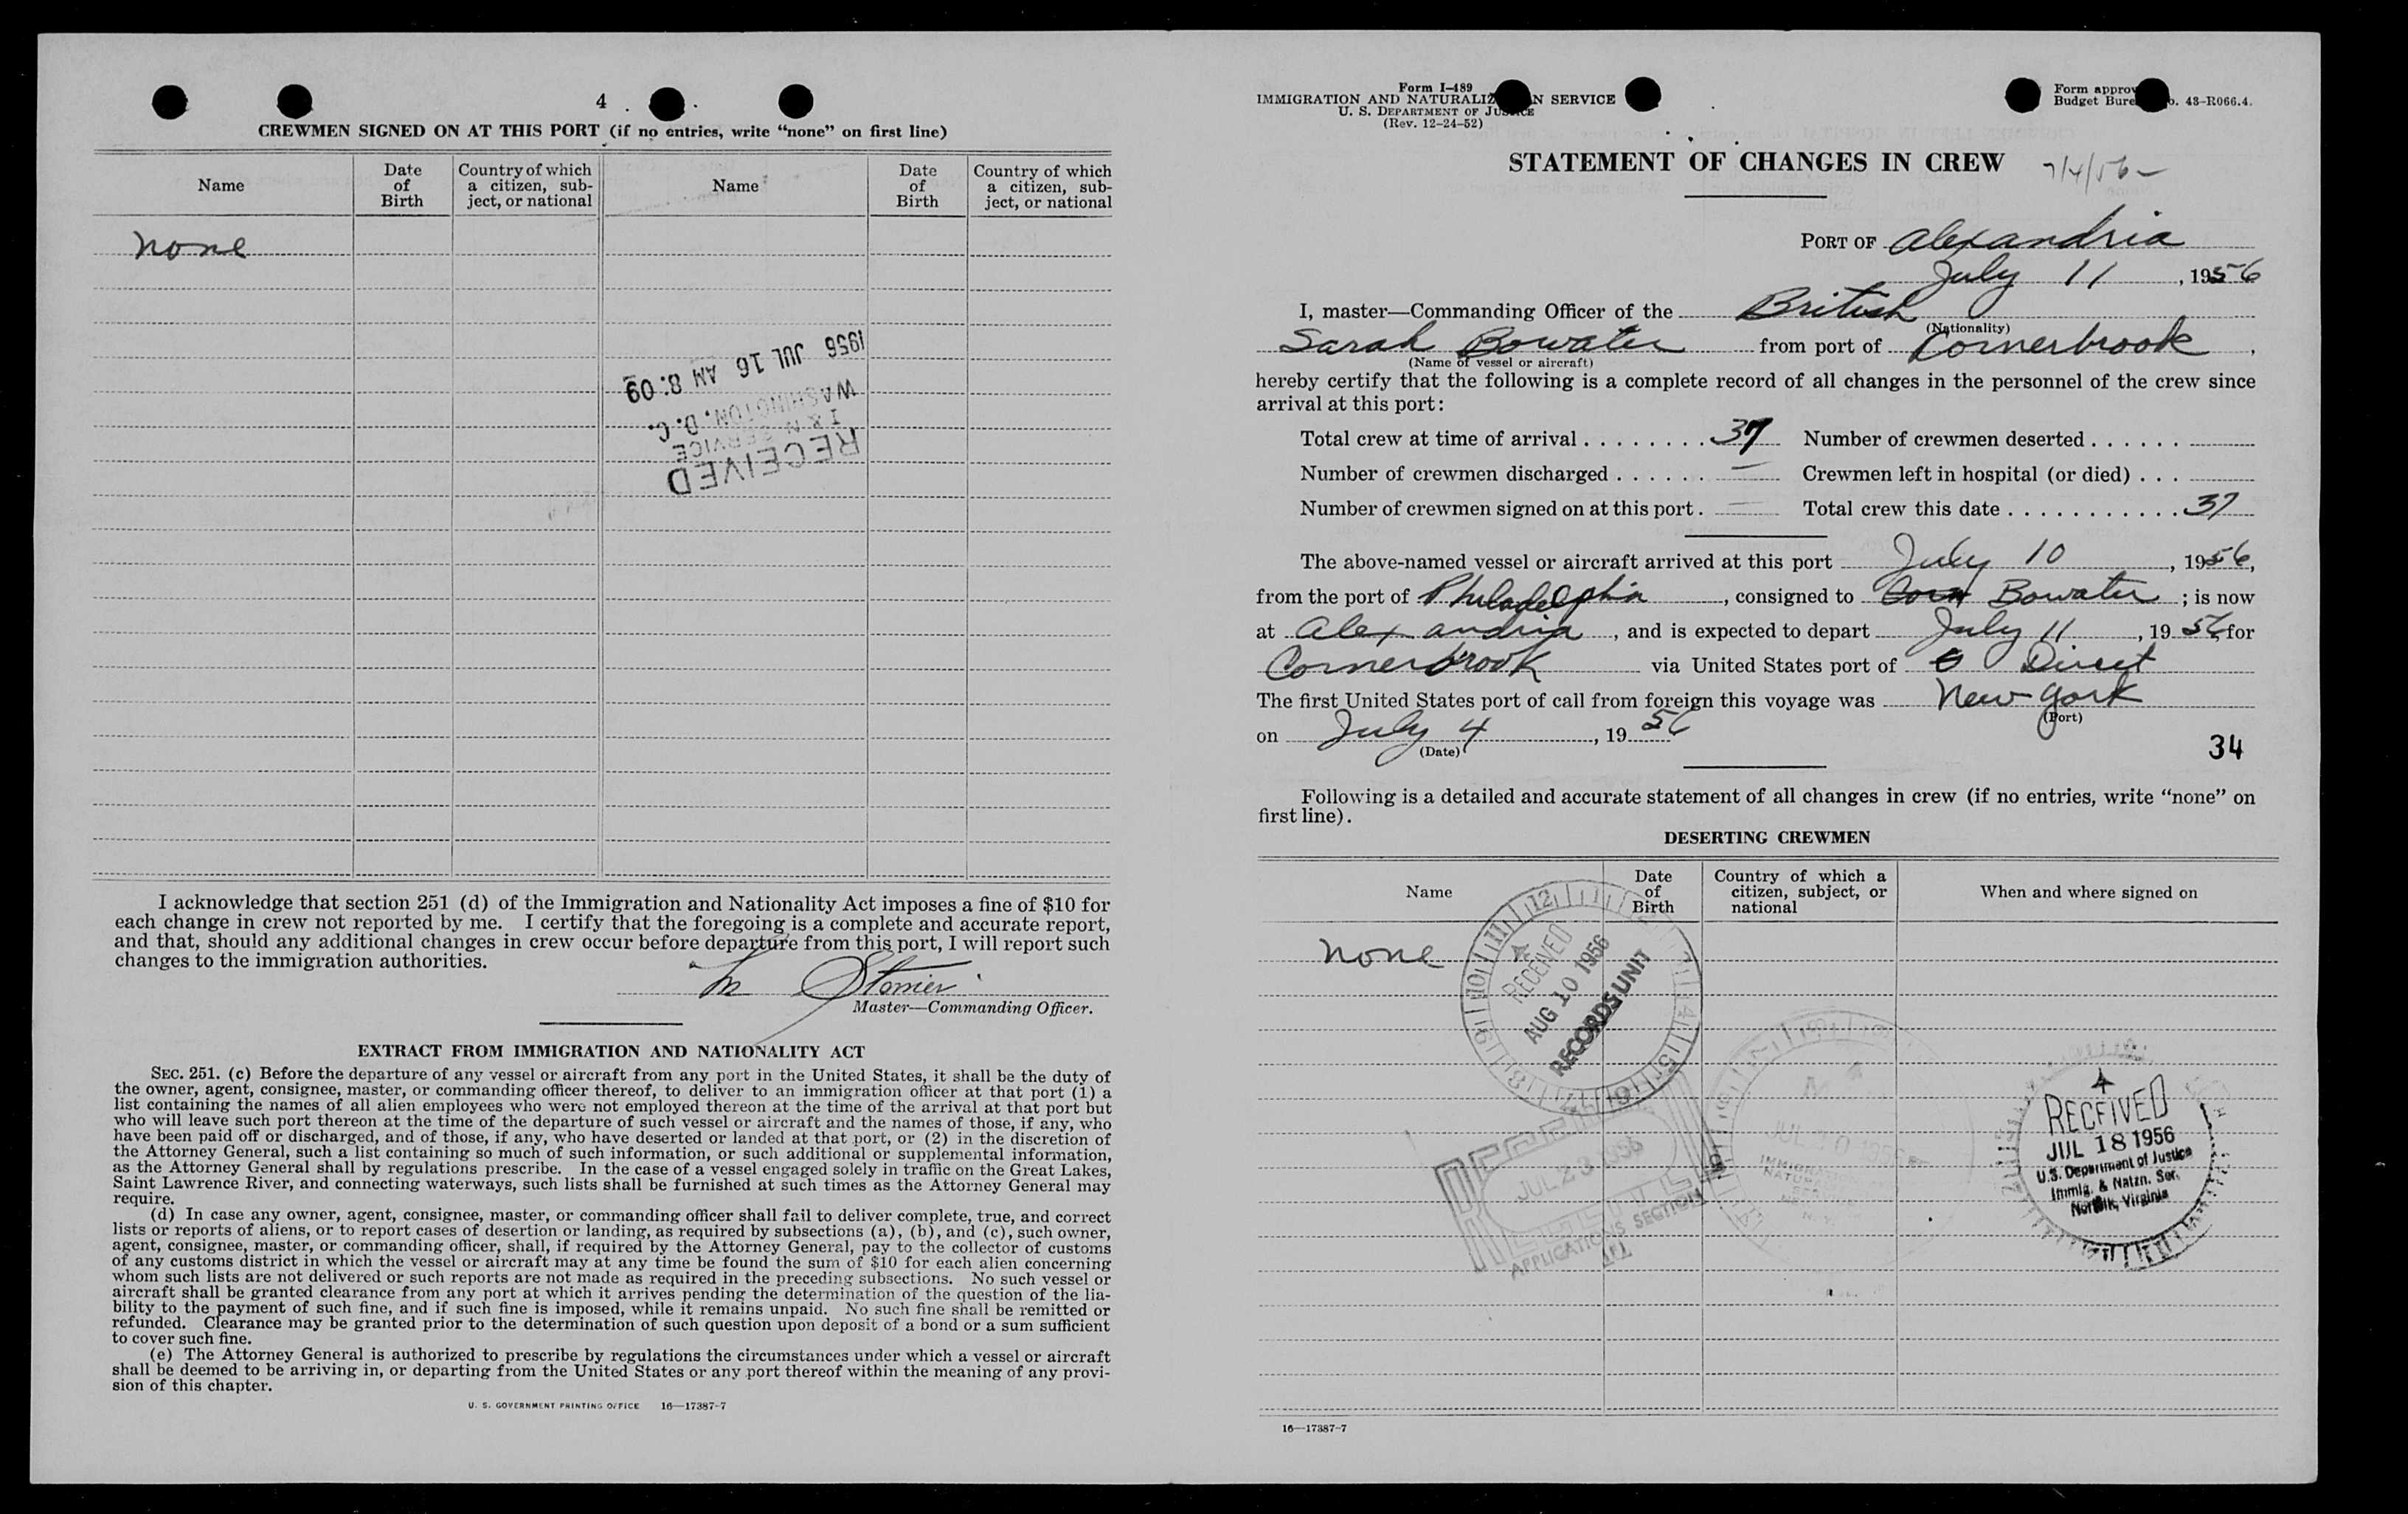 4
CREWMEN SIGNED ON AT THIS PORT (if no entries, write “none” on first line)
Name
Date of Birth
Country of which a citizen, sub-ject, or national
Name
Date of Birth
Country of which a citizen, sub-ject, or national
none
1956 JUL 16 AM 8:09
WASHINGTON. D. C.
I & N SERVICE
RECEIVED
I acknowledge that section 251 (d) of the Immigration and Nationality Act imposes a fine of $10 for
each change in crew not reported by me. I certify that the foregoing is a complete and accurate report,
and that, should any additional changes in crew occur before departure from this port, I will report such
changes to the immigration authorities.
Master—Commanding Officer.
EXTRACT FROM IMMIGRATION AND NATIONALITY ACT
SEC. 251. (c) Before the departure of any vessel or aircraft from any port in the United States, it shall be the duty of
the owner, agent, consignee, master, or commanding officer thereof, to deliver to an immigration officer at that port (1) a
list containing the names of all alien employees who were not employed thereon at the time of the arrival at that port but
who will leave such port thereon at the time of the departure of such vessel or aircraft and the names of those, if any, who
have been paid off or discharged, and of those, if any, who have deserted or landed at that port, or (2) in the discretion of
the Attorney General, such a list containing so much of such information, or such additional or supplemental information,
as the Attorney General shall by regulations prescribe. In the case of a vessel engaged solely in traffic on the Great Lakes,
Saint Lawrence River, and connecting waterways, such lists shall be furnished at such times as the Attorney General may
require.
(d) In case any owner, agent, consignee, master, or commanding officer shall fail to deliver complete, true, and correct
lists or reports of aliens, or to report cases of desertion or landing, as required by subsections (a), (b), and (c), such owner,
agent, consignee, master, or commanding officer, shall, if required by the Attorney General, pay to the collector of customs
of any customs district in which the vessel or aircraft may at any time be found the sum of $10 for each alien concerning
whom such lists are not delivered or such reports are not made as required in the preceding subsections. No such vessel or
aircraft shall be granted clearance from any port at which it arrives pending the determination of the question of the lia-
bility to the payment of such fine, and if such fine is imposed, while it remains unpaid. No such fine shall be remitted or
refunded. Clearance may be granted prior to the determination of such question upon deposit of a bond or a sum sufficient
to cover such fine.
(e) The Attorney General is authorized to prescribe by regulations the circumstances under which a vessel or aircraft
shall be deemed to be arriving in, or departing from the United States or any port thereof within the meaning of any provi-
sion of this chapter.
U. S. GOVERNMENT PRINTING OFFICE 16—17387-7
Form I-489
IMMIGRATION AND N SERVICE
U. S. DEPARTMENT OF
(Rev. 12-24-52)
Form
Budget 43-R066.4.
STATEMENT OF CHANGES IN CREW 7/4/56 –
PORT OF Alexandria
July 11, 1956
I, master—Commanding Officer of the British
(Nationality)
Sarah Bowater from port of Cornerbrook,
(Name of vessel or aircraft)
hereby certify that the following is a complete record of all changes in the personnel of the crew since
arrival at this port:
Total crew at time of arrival . . . . . . . . 37 Number of crewmen deserted . . . . . .
Number of crewmen discharged . . . . . . — Crewmen left in hospital (or died) . . .
Number of crewmen signed on at this port . — Total crew this date . . . . . . . . . . . . 37
The above-named vessel or aircraft arrived at this port July 10, 1956,
from the port of Philadelphia, consigned to Bowater; is now
at Alexandria, and is expected to depart July 11, 1956, for
Cornerbrook via United States port of Direct
The first United States port of call from foreign this voyage was New York
(Port)
on July 4, 1956
(Date)
34
Following is a detailed and accurate statement of all changes in crew (if no entries, write “none” on
first line).
DESERTING CREWMEN
Name
Date of Birth
Country of which a citizen, subject, or national
When and where signed on
none
RECEIVED
AUG 10 1956
RECORDS UNIT
RECEIVED
JUL 18 1956
U.S. Department of Justice
Immig. & Natzn. Ser.
Norfolk, Virginia
JUL 23 1956
APPLICATIONS SECTION
16—17387-7